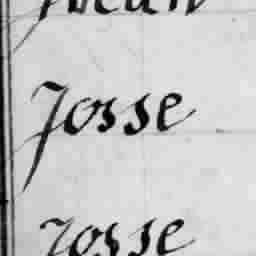 Josse
Josse